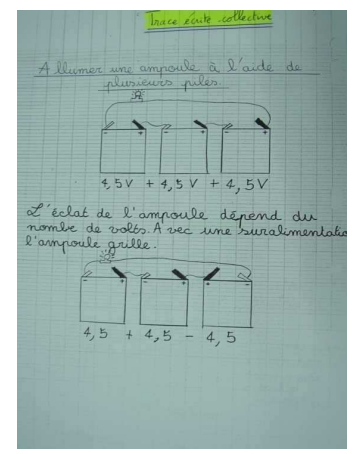 Trace écrite collective
Allumer une ampoule à l'aide de
plusieurs piles
- + - + - +
4,5V + 4,5V + 4,5V
L'éclat de l'ampoule dépend du
nombe de volts. Avec une suralimentatio
l'ampoule grille.
- + - + + -
4,5 + 4,5 - 4,5